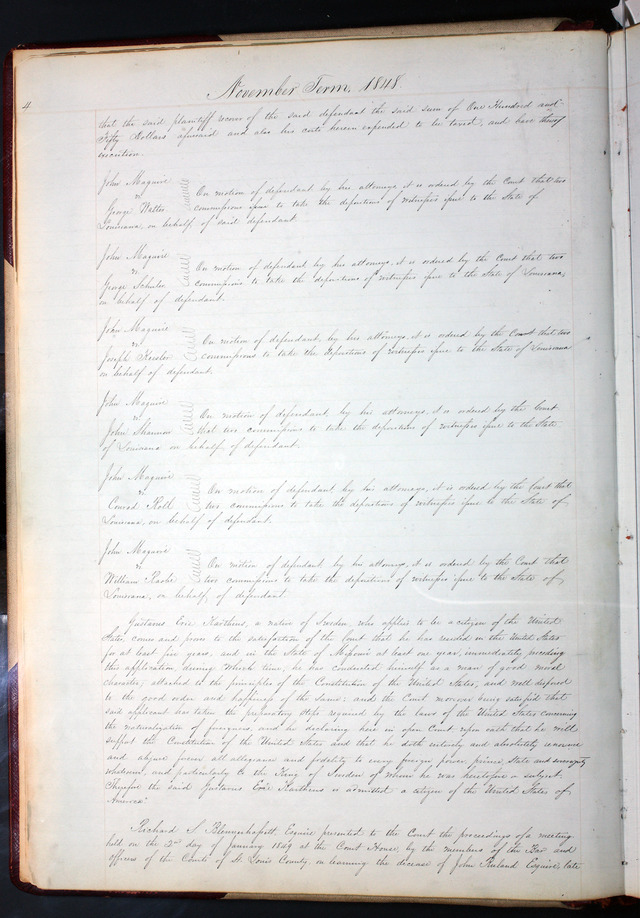 November Term, 1848
4
that the said plaintiff recover of the said defendant the said sum of One Hundred and
Fifty Dollars aforesaid and also his costs herein expended to be taxed, and have thereof
execution.
John Maguire
vs
George Walton
On motion of defendant by his attorneys, it is ordered by the Court that two
commissions issue to take the depositions of witnesses issue to the State of
Louisiana, on behalf of said defendant.
John Maguire
vs
George Schuler
On motion of defendant by his attorneys, it is ordered by the Court that two
commissions to take the depositions of witnesses issue to the State of Louisiana,
on behalf of defendant.
John Maguire
vs
Joseph Kessler
On motion of defendant, by his attorneys, it is ordered by the Court that two
commissions to take the depositions of witnesses issue to the State of Louisiana
on behalf of defendant.
John Maguire
vs
John Shannon
On motion of defendant, by his attorneys, it is ordered by the Court
that two commissions to take the deposition of witnesses issue to the State
of Louisiana on behalf of defendant.
John Maguire
vs
Conrad Kolb
On motion of defendant, by his attorneys, it is ordered by the Court that
two commissions to take the depositions of witnesses issue to the State of
Louisiana, on behalf of defendant.
John Maguire
vs
William
On motion of defendant by his attorneys, it is ordered by the Court that
two commissions to take the depositions of witnesses issue to the State of
Louisiana, on behalf of defendant.
Gustavus Eric a native of Sweden, who applies to be a citizen of the United
States, comes and proves to the satisfaction of the Court that he has resided in the United States
for at least five years, and in the State of Missouri at least one year, immediately preceding
this application, during which time, he has conducted himself as a man of good moral
character, attached to the principles of the Constitution of the United States, and well disposed
to the good order and happiness of the same: and the Court moreover being satisfied that
said applicant has taken the preparatory steps required by the laws of the United States concerning
the naturalization of foreigners, and he declaring here in open Court upon oath that he will
support the Constitution of the United States and that he doth entirely and absolutely renounce
and abjure forever all allegiance and fidelity to every foreign power, prince, State and sovereignty
whatsoever, and particularly to the King of Sweden of whom he was heretofore a subject.
Therefore the said Gustavus Eric is admitted a citizen of the United States of
America.
Richard S. Blennerhassett, Esquire presented to the Court the proceedings of a meeting
held on the 2nd day of January 1849 at the Court House, by the members of the Bar and
officers of the Courts of St. Louis County, on learning the decease of John Ruland Esquire, late